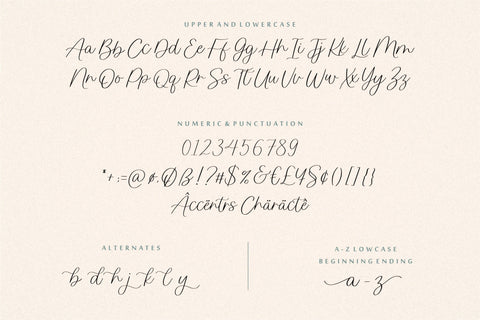 UPPER AND LOWERCASE
Aa Bb Cc Dd Ee Ff Gg Hh Ii Jj Kk Ll Mm
Nn Oo Pp Qq Rr Ss Tt Uu Vv Ww Xx Yy Zz
NUMERIC & PUNCTUATION
0123456789
Âccëntrs Chārāctê
ALTERNATES
b d h j k l y
A-Z LOWCASE
BEGINNING ENDING
a - z